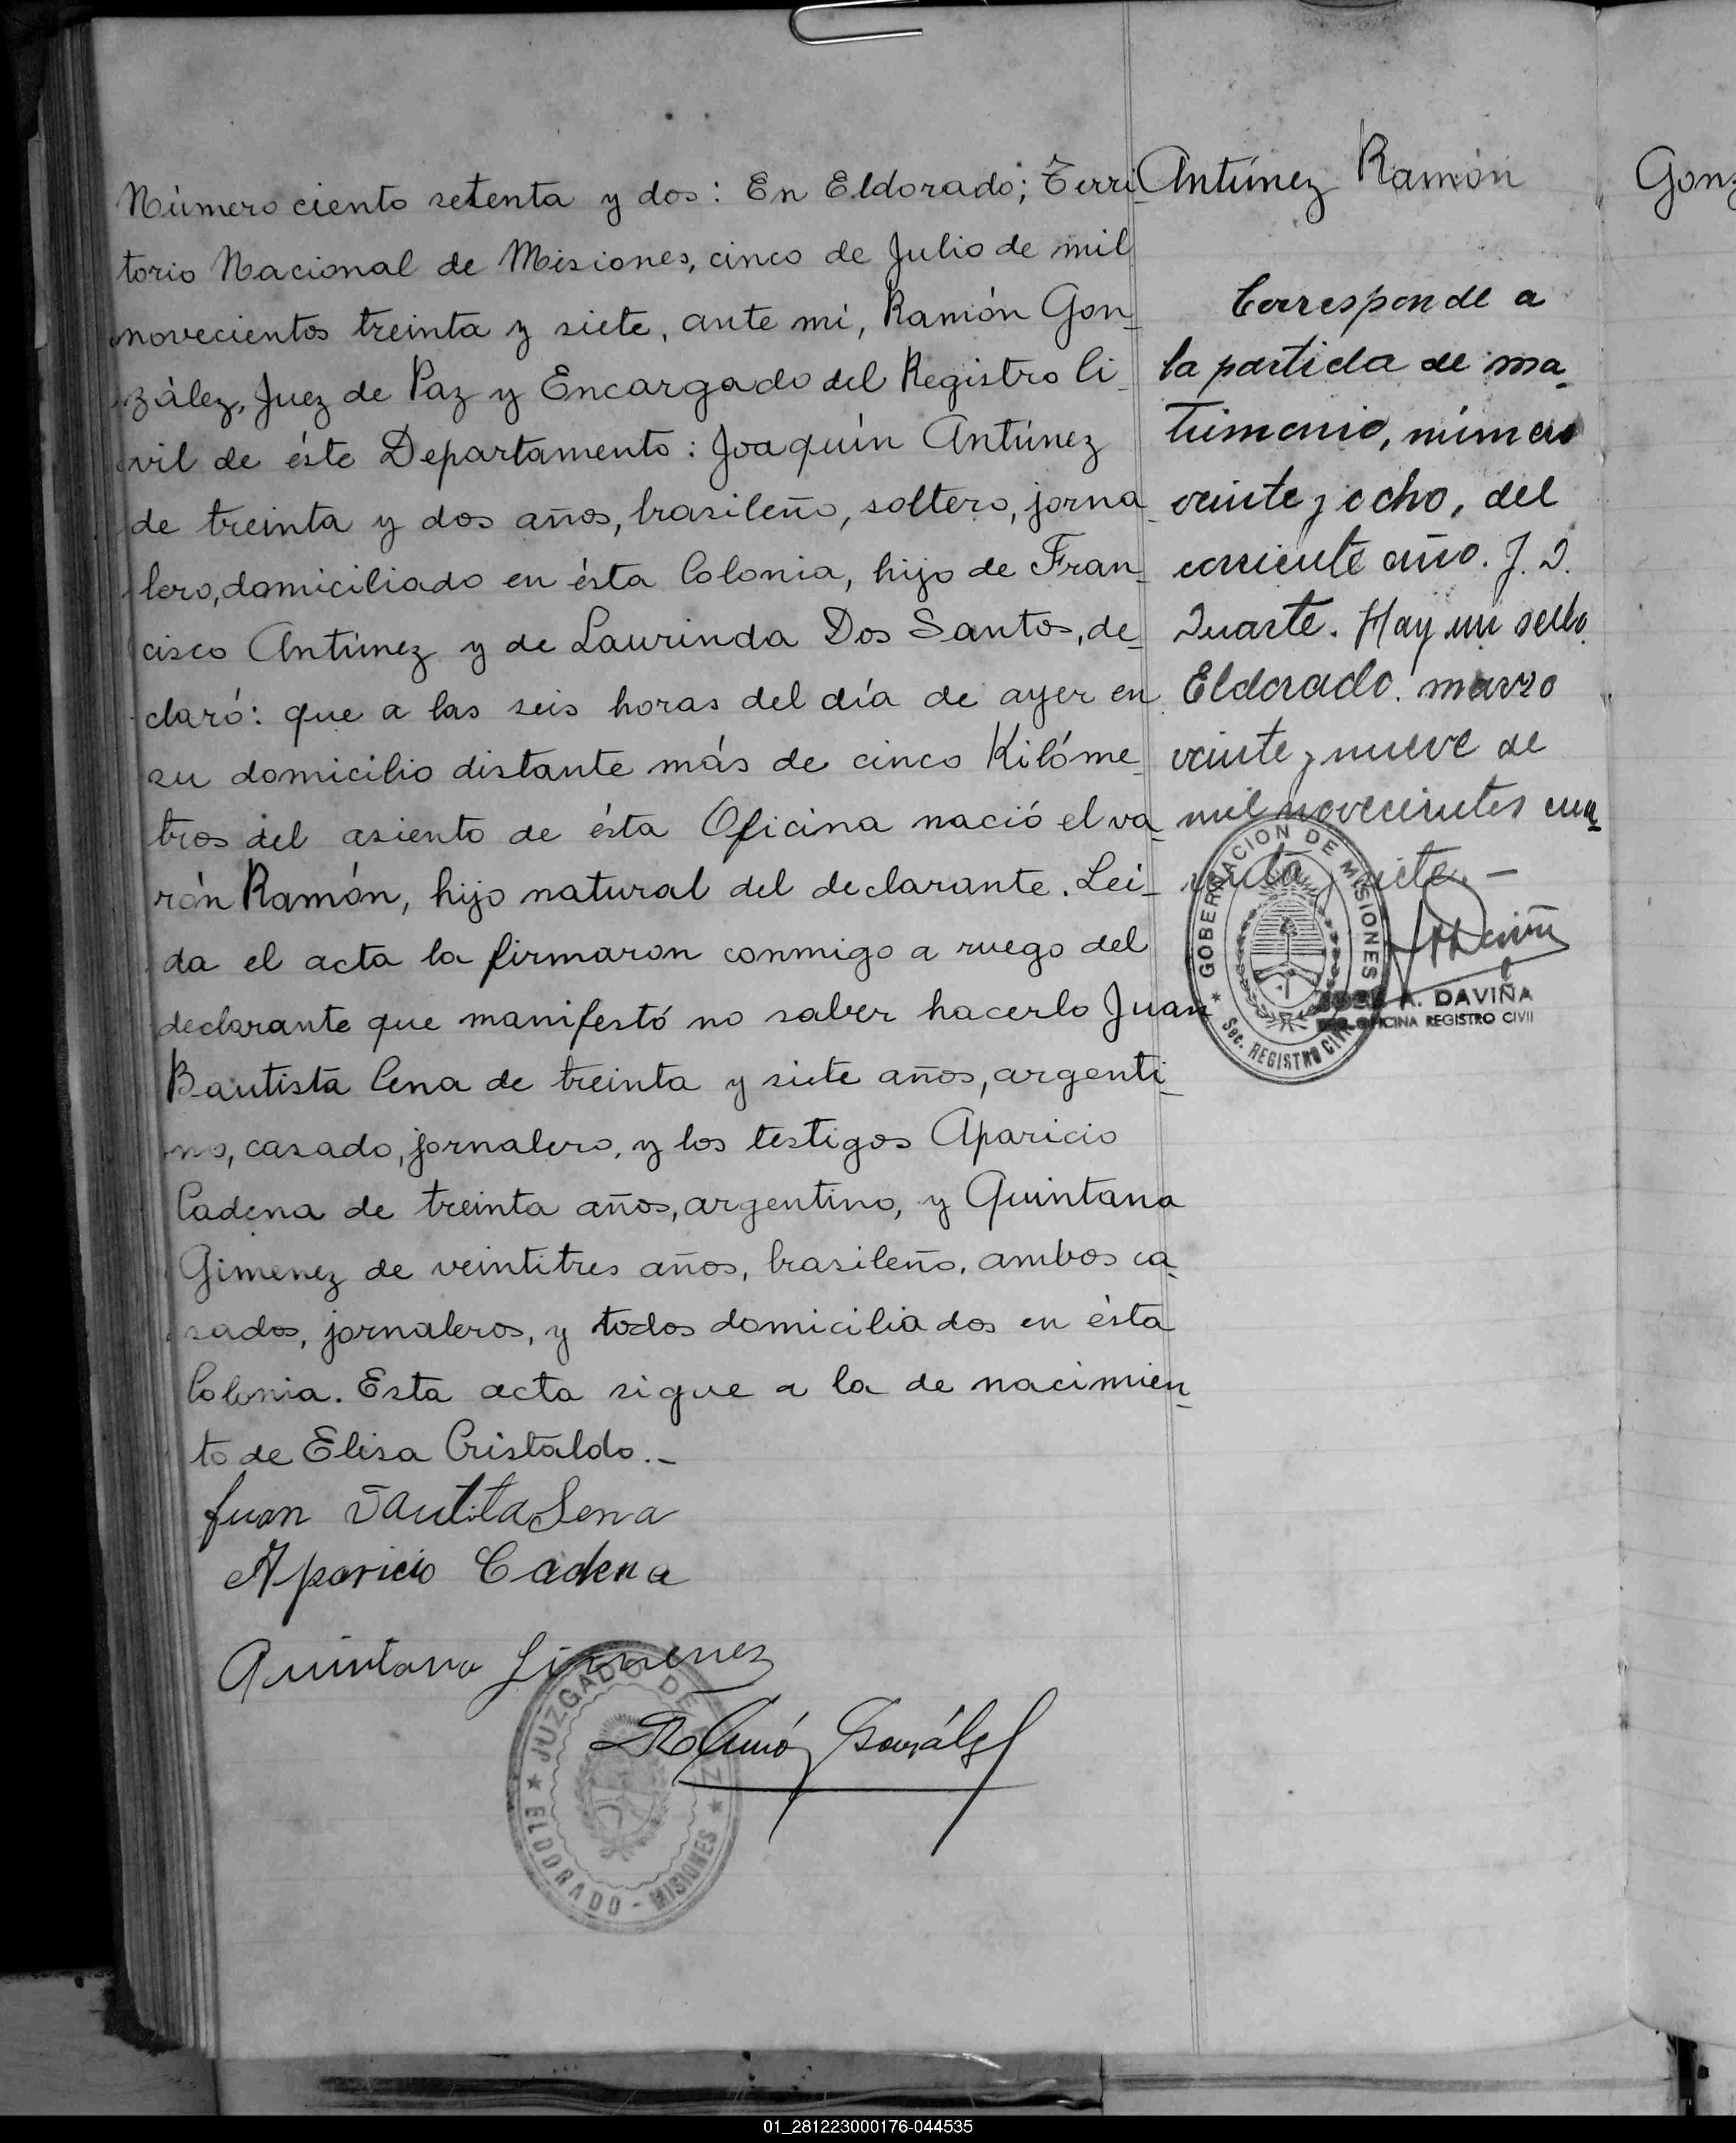 Número ciento setenta y dos: En Eldorado; Terri-
torio Nacional de Misiones, cinco de Julio de mil
novecientos treinta y siete, ante mi, Ramón Gon-
zález, Juez de Paz y Encargado del Registro Ci-
vil de éste Departamento: Joaquín Antúnez
de treinta y dos años, brasileño, soltero, jorna-
lero, domiciliado en ésta Colonia, hijo de Fran-
cisco Antúnez y de Laurinda Dos Santos, de-
claró: que a las seis horas del día de ayer en
su domicilio distante más de cinco Kilóme-
tros del asiento de ésta Oficina nació el va-
rón Ramón, hijo natural del declarante. Lei-
da el acta la firmaron conmigo a ruego del
declarante que manifestó no saber hacerlo Juan
Bautista Cena de treinta y siete años, argenti-
no, casado, jornalero, y los testigos Aparicio
Cadena de treinta años, argentino, y Quintana
Gimenez de veintitres años, brasileño, ambos ca-
sados, jornaleros, y todos domiciliados en ésta
Colonia. Esta acta sigue a la de nacimien-
to de Elisa Cristaldo.-
Juan Bautita Sena
Aparicio Cadena
Quintana Jimenez
Ramón González
JUZGADO DE PAZ
ELDORADO - MISIONES
Antúnez Ramón
Corresponde a
la partida de ma-
trimonio, número
veinte y ocho, del
corriente año. J. D.
Duarte. Hay un sello.
Eldorado. marzo
veinte y nueve de
mil novecientos cua-
renta y siete. -
GOBERNACION DE MISIONES
Sec. REGISTRO CIVIL
A. DAVIÑA
OFICINA REGISTRO CIVIL
Gonz
01_281223000176-044535